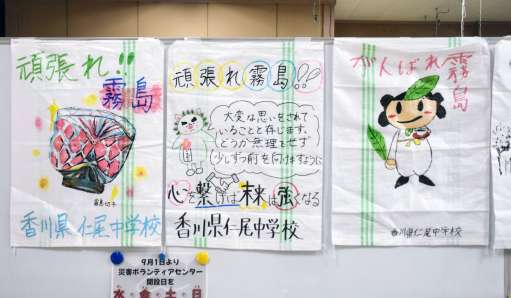 頑張れ!!
霧島
霧島切子
香川県仁尾中学校
頑張れ霧島!!
大変な思いをされて
いることと存じます。
どうか無理をせず
少しずつ前を向けますように
心を繋げば未来は強くなる
香川県仁尾中学校
がんばれ
霧島
香川県仁尾中学校
9月1日より
災害ボランティアセンター
開設日を
水・金・土・日